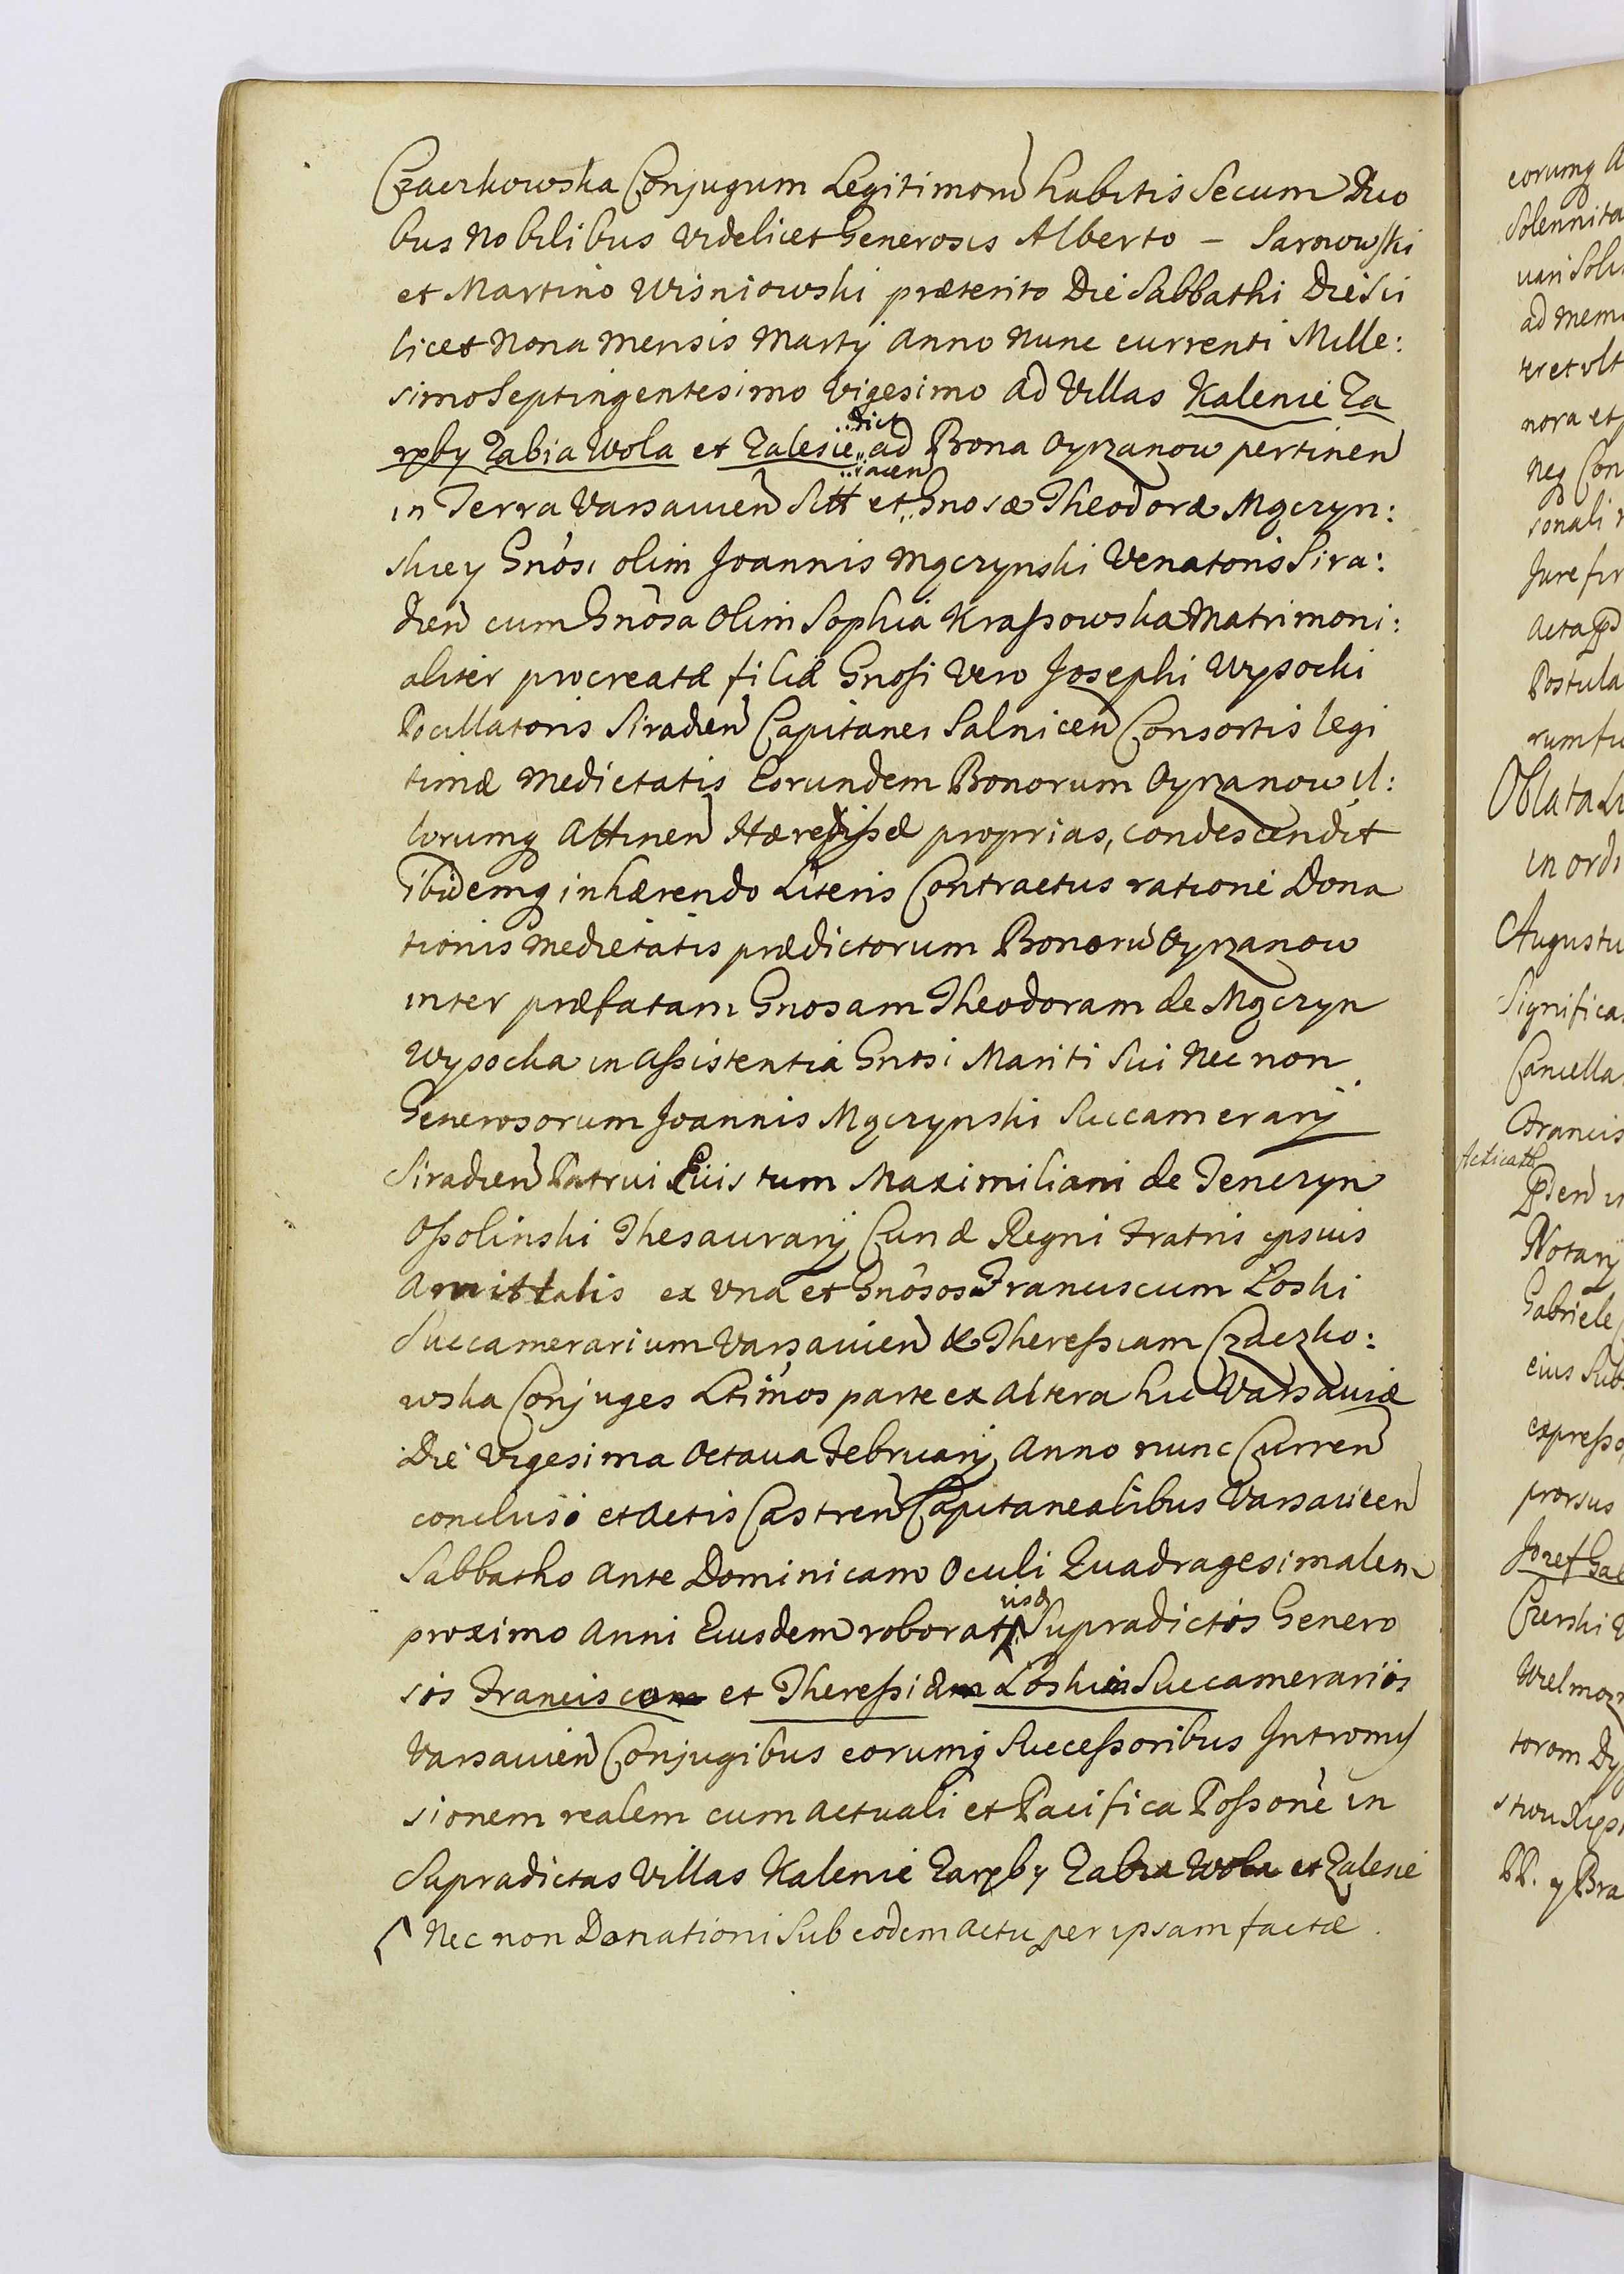 Czaerkowska Conjugum Legitimorũ habitis Secum Duo
bus Nobilibus videlicet Generosis Alberto – Sarnowski
et Martino Wisniowski præterito Die Sabbathi Die Sci
licet Nona Mensis Martij Anno Nunc currenti Mille:
simo Septingentesimo Vigesimo ad Villas Kalenie Za
rzby Zabia Wola et Zalesie dict ad Bona Oyrzanow pertinen
in Terra Varsavien Sitt et iacen Gnosæ Theodoræ Mączyn:
skiey Gnosi olim Joannis Mączynski Venatoris Sira:
dien cum Gnosa Olim Sophia Krassowska Matrimoni:
aliter procreatæ filiæ Gnosi Vero Josephi Wysocki
Pocillatoris Siradien Capitanei Salnicen Consortis legi
timæ Medietatis Eorundem Bonorum Oyrzanow il:
lorumq Attinen Hæredissæ proprias, condescendit
ibidemq inhærendo Literis Contractus ratione Dona
tionis Medietatis prædictorum Bonorũ Oyrzanow
inter præfatam Gnosam Theodoram de Mączyn
Wysocka in Assistentia Gnosi Mariti Sui Nec non
Generosorum Joannis Mączynski Succamerarij
Siradien Patrui Eius tum Maximiliani de Tenczyn
Ossolinski Thesaurarij Curiæ Regni Fratris ipsius
Amittalis ex Una et Gnosos Franciscum Loski
Succamerarium Varsavien & Theressiam Czaczko:
wska Conjuges Ltimos parte ex altera hic Varsaviæ
Die Vigesima Octava Februarij Anno nunc Curren
concluso et Actis Castren Capitanealibus Varsavien
Sabbatho Ante Dominicam Oculi Quadragesimalem
proximo Anni Eiusdem roborat Supradictos Genero
sos Franciscum et Theressiam Loskie Succamerarios
Varsavien Conjugibus eorumq Successoribus Intromis
sionem realem cum actuali et Pacifica Possone in
Supradictas Villas Kalenie Zarzby Zabia Wola et Zalesie
Nec non Donationi Sub eodem actu per ipsam factæ.
eorumq
Solennita
ad mem
nora et
neq Con
sonali
Jure fir
Postula
Oblata
in ordi
Augustu
Significa
Cancella
Francis
Notarij
Gabriele
eius Sub
express
prorsus
Jozef Gab
Czerski
Wielmoz